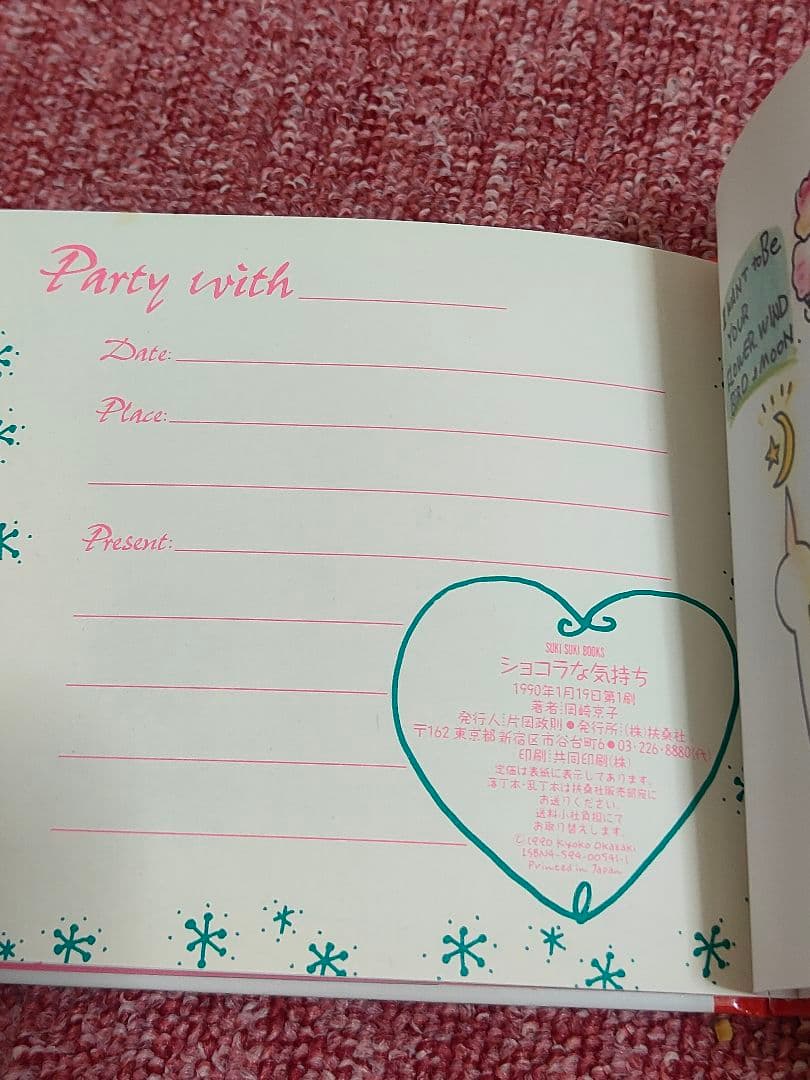 Party with
Date:
Place:
Present:
SUKI SUKI BOOKS
ショコラな気持ち
1990年1月19日第1刷
著者:岡崎京子
発行人:片岡政則●発行所:(株)扶桑社
〒162 東京都新宿区市谷台町6●03・226・8880(代)
印刷:共同印刷(株)
定価は表紙に表示してあります。
落丁本・乱丁本は扶桑社販売部宛に
お送りください。
送料小社負担にて
お取り替えします。
©1990 Kyoko Okazaki
ISBN4-594-00541-1
Printed in Japan
I WANT to Be
YOUR
FLOWER WIND
BIRD & MOON.